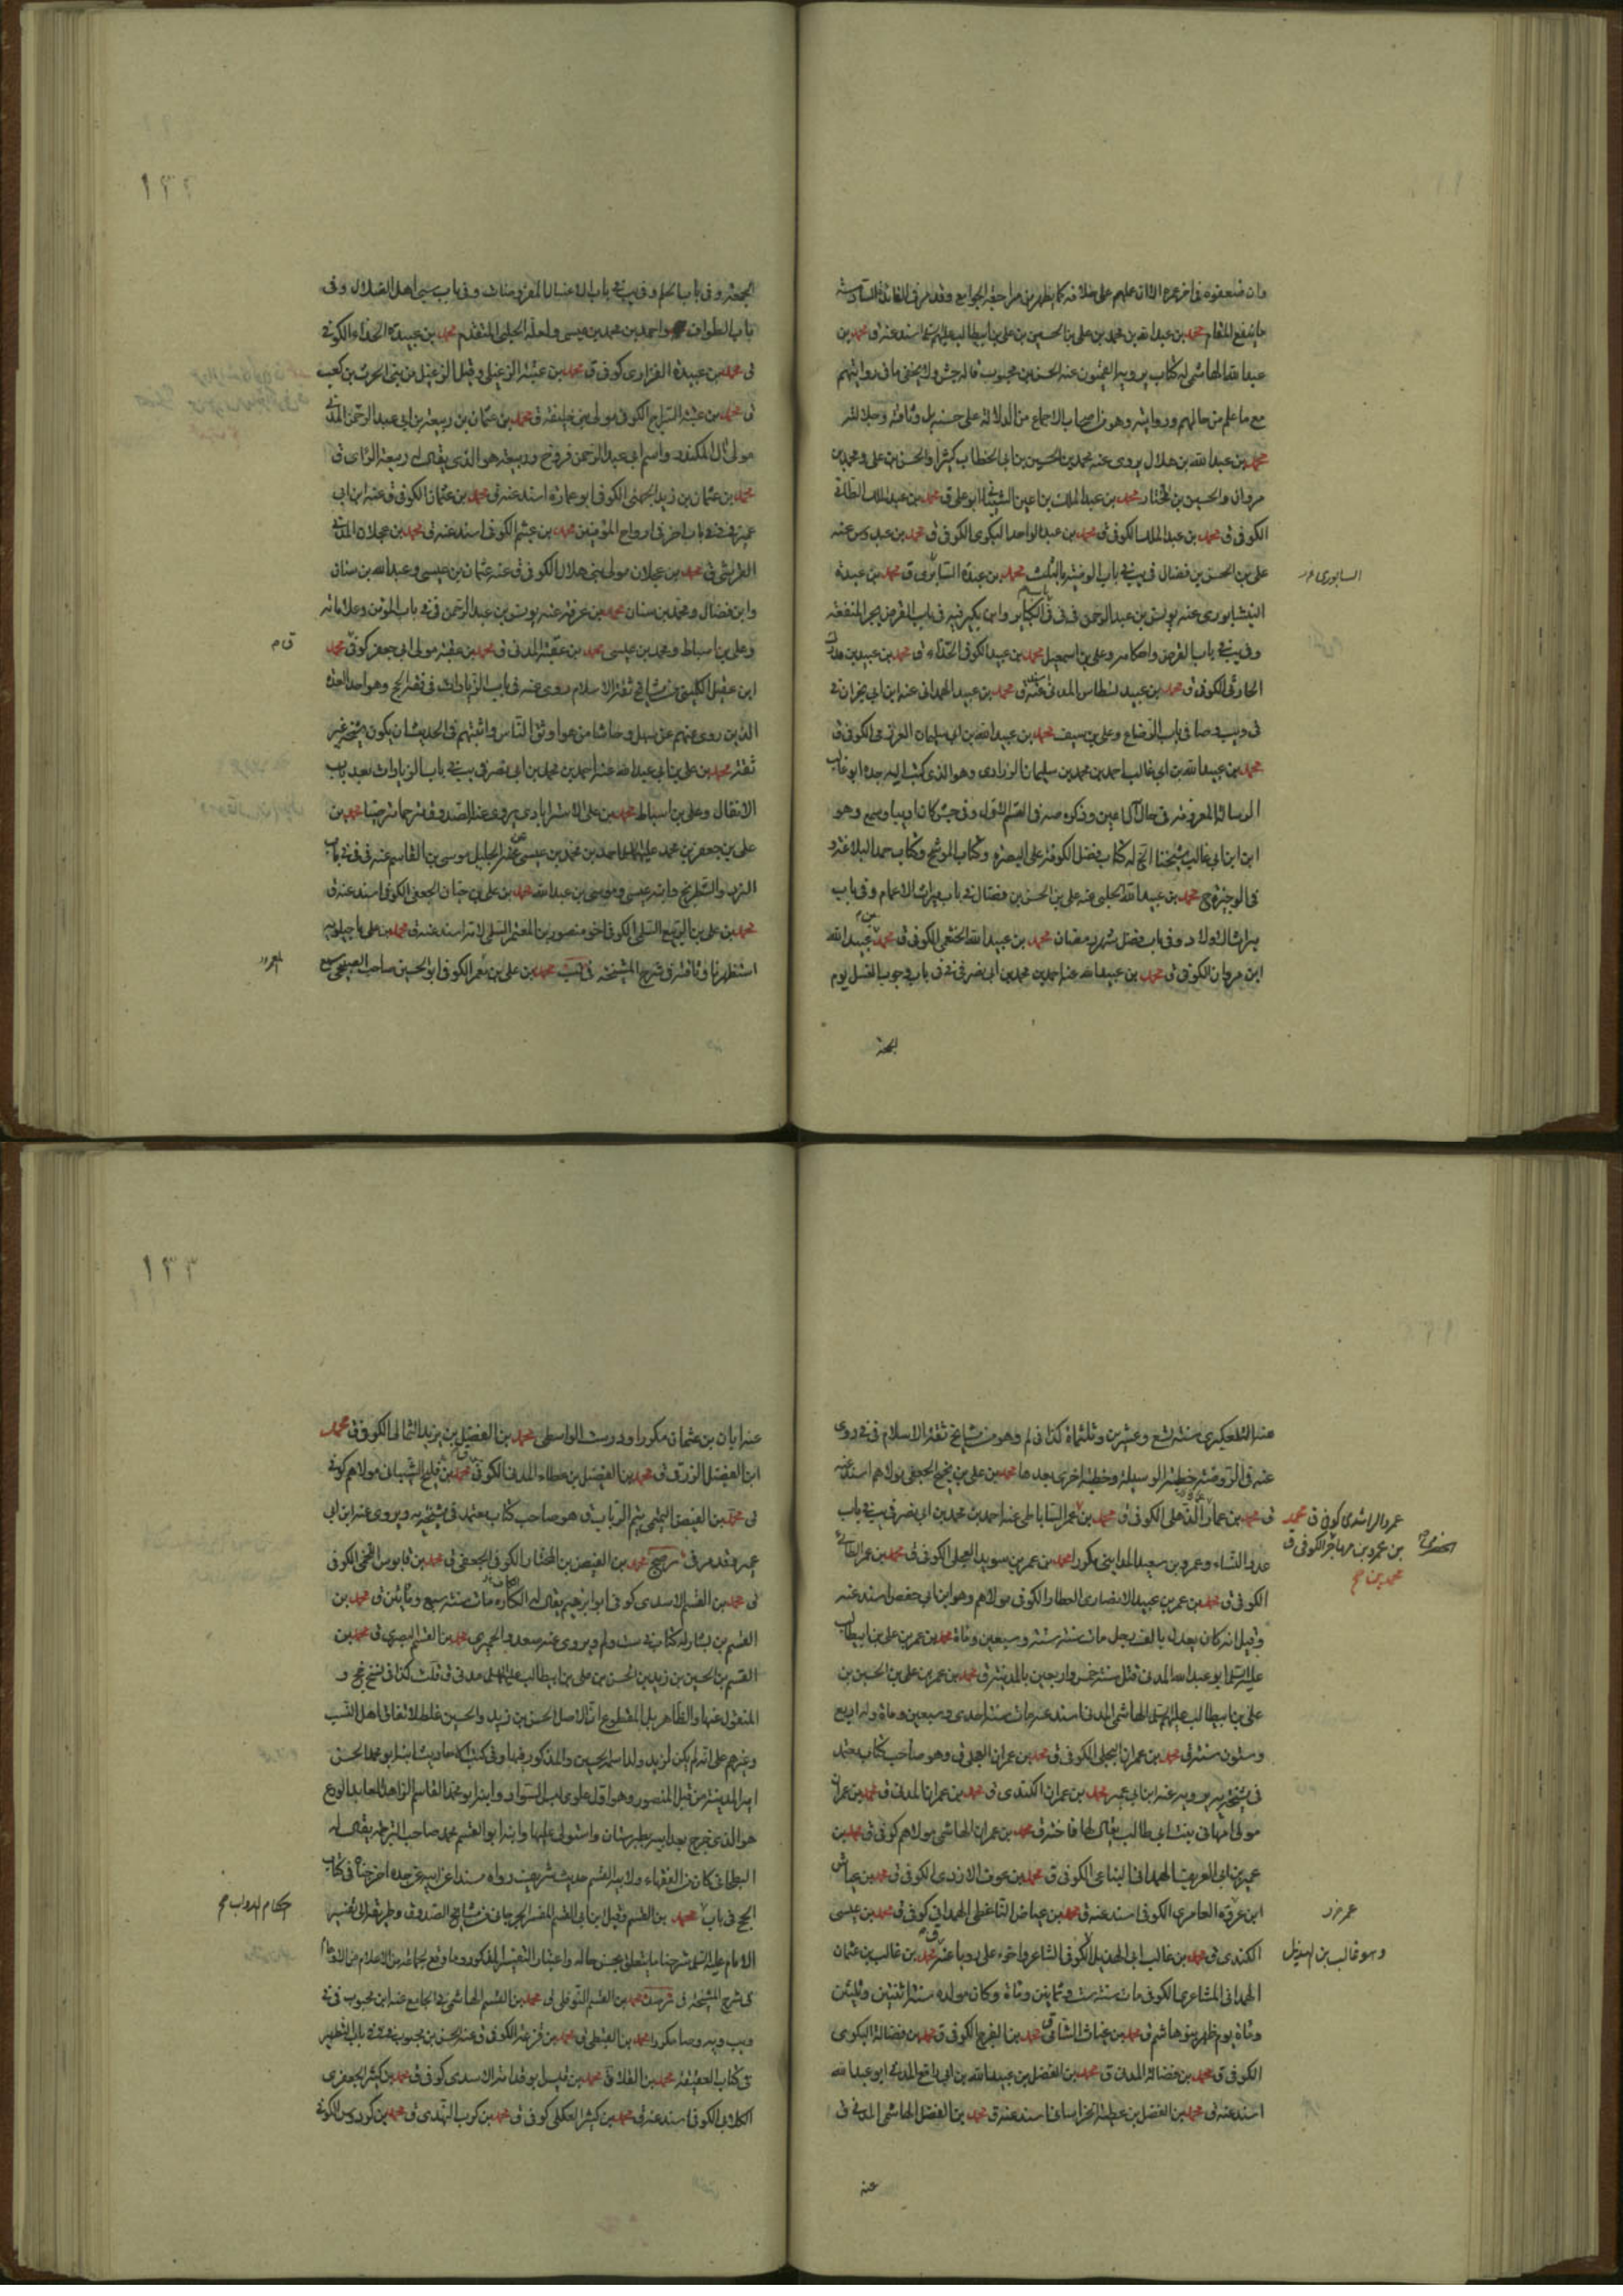 وان ضعفوه في اخر عمره الا ان عليهم على خلافه كما يظهر من مراجعة الجوامع وقد مر في الفائدة السادسة
ما ينفع المقام محمد بن عبد الله بن محمد بن علي بن الحسين بن علي بن ابيطالب عليهم اسند عنه ق محمد بن
عبد الله الهاشمي له كتاب يرويه القميون عنه الحسن بن محبوب قاله جش ولا يخفى ما في روايتهم
مع ما علم من حالهم ورواية وهو من اصحاب الاجماع من الدلالة على حسنه بل وثاقته وجلالته
محمد بن عبد الله بن هلال يروى عنه محمد بن الحسين بن ابي الخطاب كثيرا والحسن بن علي ومحمد بن
مروان والحسين بن المختار محمد بن عبد الملك بن اعين الشيباني ابو علي ق محمد بن عبد الملك
الكوفي ق محمد بن عبد الملك الكوفي ق محمد بن عبد الواحد البكري الكوفي ق محمد بن عبدوس عنه
علي بن الحسن بن فضال في يب في باب الوصية بالثلث محمد بن عبدة السابوري ق محمد بن عبدة
النيشابوري عنه يونس بن عبد الرحمن في في باب الكبائر وابن بكير فيه في باب القرض يجر المنفعة
وفي يب في باب القرض واحكامه وعلي بن اسمعيل محمد بن عبيد الكوفي الحذاء ق محمد بن عبيد بن
الحارثي الكوفي ق محمد بن عبيد المدني اسند عنه ق محمد بن عبيد الهمداني عنه ابن ابي نجران في
في ويب وصا في باب الرضاع وعلي بن سيف محمد بن عبيد الله بن ابي سليمان العرزمي الكوفي ق
محمد بن عبيد الله بن ابي غالب احمد بن محمد بن سليمان الزراري وهو الذي كتب اليه جده ابو غالب
الرسالة المعروفة في حال آل اعين وذكره صه في القسم الاول وفي جش كان اديبا وسمع وهو
ابن ابن ابي غالب شيخنا الخ له كتاب فضل الكوفة على البصرة وكتاب الموشح وكتاب جمل البلاغة و
في الوجيزة ح محمد بن عبيد الله الحلبي عنه علي بن الحسن بن فضال في باب ميراث الاعمام وفي باب
ميراث الاولاد وفي باب فضل شهر رمضان محمد بن عبيد الله الخثعمي الكوفي ق محمد بن عبيد الله
ابن مروان الكوفي ق محمد بن عبيد الله عنه احمد بن محمد بن ابي نصر في في في باب وجوب الغسل يوم
الجمعة
السابوري
١٣٢
الجمعة وفي باب الحلم وفي يب في باب الاغسال المفروضات وفي باب سبى اهل الضلال وفي
باب الطواف واحمد بن محمد بن عيسى ولعله الحلبي المتقدم محمد بن عبيدة الحذاء الكوفي
ق محمد بن عبيدة الفزاري كوفي ق محمد بن عثيم الزعبلي وقيل الزعبل من بني الحرث بن كعب
ق محمد بن عثيم السراج الكوفي مولى بني خليفة ق محمد بن عثمان بن ربيعة بن ابي عبد الرحمن المدني
مولى آل المنكدر واسم ابي عبد الرحمن فروخ وربيعة هو الذي يقال له ربيعة الراى ق
محمد بن عثمان بن زيد الجهني الكوفي ابو عمارة اسند عنه ق محمد بن عثمان الكوفي ق عنه ابن ابي
عمير في في باب اخر في ارواح المؤمنين محمد بن عثيم الكوفي اسند عنه ق محمد بن عجلان المدني
القرشي ق محمد بن عجلان مولى بني هلال الكوفي ق عنه عثمان بن عيسى وعبد الله بن سنان
وابن فضال ومحمد بن سنان محمد بن عرفة عنه يونس بن عبد الرحمن في في باب المؤمن وعلاماته
وعلي بن اسباط ومحمد بن عيسى محمد بن عقبة المدني ق محمد بن عقبة مولى ابي جعفر كوفي محمد
ابن عقيل الكليني من مشايخ ثقة الاسلام روى عنه في باب الزيادات في فقه الحج وهو احد العدة
الذين روى عنهم عن سهل وحاشا من هو اوثق الناس واثبتهم في الحديث ان يكون شيخه غير
ثقة محمد بن علي بن ابي عبد الله عنه احمد بن محمد بن ابي نصر في يب في باب الزيادات بعد باب
الانفال وعلي بن اسباط محمد بن علي الاسترابادي يروى عنه الصدوق مترحما مترضيا محمد بن
علي بن جعفر بن محمد عليهما احمد بن محمد بن عيسى عن الجليل موسى بن القاسم عنه في في في باب
النرد والشطرنج وابنه عيسى وموسى بن عبد الله محمد بن علي بن حيان الجعفي الكوفي اسند عنه ق
محمد بن علي بن الربيع السلمي الكوفي اخو منصور بن المعتمر السلمي لامه اسند عنه ق محمد بن علي ماجيلويه
استظهرنا وثاقته في شرح المشيخة في محمد بن علي بن معمر الكوفي ابو الحسين صاحب الصبيحي سمع
ق م
عنه التلعكبري سنة تسع وعشرين وثلثمائة كذا في لم وهو من مشايخ ثقة الاسلام في في روى
عنه في الروضة خطبة الوسيلة وخطبة اخرى بعدها محمد بن علي بن نجيح الجعفي مولاهم اسند عنه
ق محمد بن عمار الذهلي الكوفي ق محمد بن عمر الساباطي عنه احمد بن محمد بن ابي نصر في يب في باب
عدد النساء وعمرو بن سعيد المدايني مكررا محمد بن عمر بن سويد العجلي الكوفي ق محمد بن عمر الطائي
الكوفي ق محمد بن عمر بن عبيد الانصاري العطار الكوفي مولاهم وهو ابن ابي حفص اسند عنه
وقيل انه كان يعدل بالف رجل مات سنة ستة وسبعين ومائة محمد بن عمر بن علي بن ابيطالب
عليه السلام ابو عبد الله المدني قتل سنة خمس واربعين بالمدينة ق محمد بن عمر بن علي بن الحسين بن
علي بن ابيطالب عليهم السلام الهاشمي المدني اسند عنه مات سنة احدى وسبعين ومائة وله اربع
وستون سنة ق محمد بن عمران البجلي الكوفي ق محمد بن عمران العجلي ق وهو صاحب كتاب معتمد
في مشيخة يه يرويه عنه ابن ابي عمير محمد بن عمران الكندي ق محمد بن عمران المدني ق محمد بن عمران
مولى ام هاني بنت ابي طالب يقال لها فاخته ق محمد بن عمران الهاشمي مولاهم كوفي ق محمد بن
عمير بن ابي العريف الهمداني البناعي الكوفي ق محمد بن عوف الازدي الكوفي ق محمد بن عياش
ابن عروة العامري الكوفي اسند عنه ق محمد بن عياض الناعطي الهمداني كوفي ق محمد بن عيسى
الكندي ق محمد بن غالب ابي الهذيل الكوفي الشاعر واخوه علي رويا عنه محمد بن غالب بن عثمان
الهمداني المشاعري الكوفي مات سنة ست وثمانين ومائة وكان مولده سنة اثنتين وثلثين
ومائة يوم ظهر بنو هاشم ق محمد بن غياث الشامي محمد بن الفرج الكوفي ق محمد بن فضالة البكري
الكوفي ق محمد بن فضالة المدني ق محمد بن الفضل بن عبيد الله بن ابي رافع المدني ابو عبد الله
اسند عنه ق محمد بن الفضل بن عطية الخراساني اسند عنه ق محمد بن الفضل الهاشمي المدني ق
عنه
عمرو الراشدي كوفي ق محمد
بن عمرو بن مهاجر الكوفي ق
محمد بن صح
وهو غالب بن الهذيل
١٣٣
عنه ابان بن عثمان مكررا ودرست الواسطي محمد بن الفضيل بن يزيد الثمالي الكوفي ق محمد
ابن الفضيل الزرقي ق محمد بن الفضيل بن عطاء المدني الكوفي محمد بن فليح الشيباني مولاهم كوفي
ق محمد بن الفيض التيمي تيم الرباب ق هو صاحب كتاب معتمد في مشيخة يه ويروى عنه ابن ابي
عمير وقد مر في محمد بن الفيض بن المختار الكوفي الجعفي ق محمد بن قابوس اللخمي الكوفي
ق محمد بن القسم الاسدي كوفي ابو ابرهيم يقال له الكاره مات سنة سبع ومأتين ق محمد بن
القسم بن بشار له كتاب في ست ولم ويروى عنه سعد والحميري محمد بن القسم البصري ق محمد بن
القسم بن الحسين بن زيد بن الحسن بن علي بن ابيطالب عليهم مدني ق قلت كذا في نسخ جخ و
المنقول عنها والظاهر بل المقطوع ان الاصل الحسن بن زيد والحسين غلط لاتفاق اهل النسب
وغيرهم على انه لم يكن لزيد ولد اسمه الحسين والمذكور فيها وفي كتب الاحاديث ابنه ابو محمد الحسن
امير المدينة من قبل المنصور وهو اول علوي لبس السواد وابنه ابو محمد القاسم الزاهد العابد الورع
هو الذي خرج بعد ابيه بطبرستان واستولى عليها وابنه ابو القسم محمد صاحب الترجمة يقال له
البطحاني كان من الفقهاء ولابيه القسم حديث شريف رواه مسندا عن ابيه عن جده اخرجناه في كتاب
الحج في باب محمد بن القسم وقيل بن ابي القسم المفسر الجرجاني من مشايخ الصدوق وطريقه الى تفسير
الامام عليه السلام شرحنا ما يتعلق بحسن حاله واعتبار التفسير المذكور وما وقع لجماعة من الاعلام من الاوهام
في شرح المشيخة في محمد بن القسم النوفلي ق محمد بن القسم الهاشمي في الجامع عنه ابن محبوب في في
ويب ويه وصا مكررا محمد بن القبطي ق محمد بن قزعة الكوفي ق عنه الحسن بن محبوب في في باب التطهير
في كتاب العقيقة محمد بن القلاء ق محمد بن قيس ابو قدامة الاسدي كوفي ق محمد بن كثير الجعفري
الكلابي الكوفي اسند عنه ق محمد بن كثير العكلي كوفي ق محمد بن كرب النهدي ق محمد بن كردوس الكوفي
احكام الدواب صح